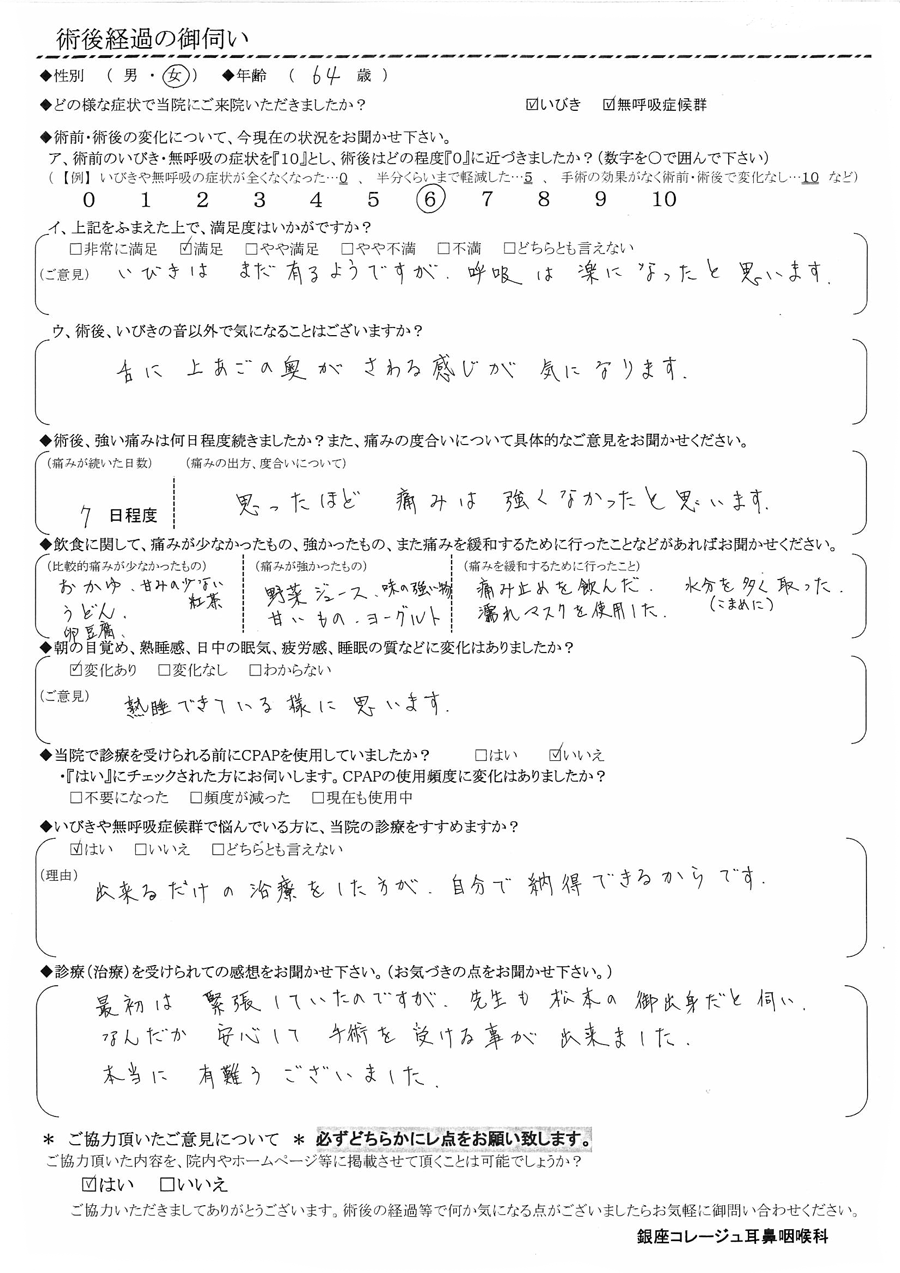 術後経過の御伺い
◆性別 ( 男 ・ 女 ) ◆年齢 ( 64 歳 )
◆どの様な症状で当院にご来院いただきましたか? ☑いびき ☑無呼吸症候群
◆術前・術後の変化について、今現在の状況をお聞かせ下さい。
ア、術前のいびき・無呼吸の症状を『10』とし、術後はどの程度『0』に近づきましたか?(数字を〇で囲んで下さい)
(【例】いびきや無呼吸の症状が全くなくなった…0 、 半分くらいまで軽減した…5 、 手術の効果がなく術前・術後で変化なし…10 など)
0 1 2 3 4 5 6 7 8 9 10
イ、上記をふまえた上で、満足度はいかがですか?
□非常に満足 ☑満足 □やや満足 □やや不満 □不満 □どちらとも言えない
(ご意見) いびきは まだ有るようですが、呼吸は楽になったと思います.
ウ、術後、いびきの音以外で気になることはございますか?
舌に上あごの奥が さわる感じが 気になります.
◆術後、強い痛みは何日程度続きましたか?また、痛みの度合いについて具体的なご意見をお聞かせください。
(痛みが続いた日数) (痛みの出方、度合いについて)
7 日程度 思ったほど 痛みは 強くなかったと思います.
◆飲食に関して、痛みが少なかったもの、強かったもの、また痛みを緩和するために行ったことなどがあればお聞かせください。
(比較的痛みが少なかったもの) (痛みが強かったもの) (痛みを緩和するために行ったこと)
おかゆ、甘みの少ない紅茶 野菜ジュース、味の強い物 痛み止めを飲んだ. 水分を多く取った.
うどん. 甘いもの.ヨーグルト 濡れマスクを使用した. (こまめに)
卵豆腐、
◆朝の目覚め、熟睡感、日中の眠気、疲労感、睡眠の質などに変化はありましたか?
☑変化あり □変化なし □わからない
(ご意見) 熟睡できている様に思います.
◆当院で診療を受けられる前にCPAPを使用していましたか? □はい ☑いいえ
・『はい』にチェックされた方にお伺いします。CPAPの使用頻度に変化はありましたか?
□不要になった □頻度が減った □現在も使用中
◆いびきや無呼吸症候群で悩んでいる方に、当院の診療をすすめますか?
☑はい □いいえ □どちらとも言えない
(理由) 出来るだけの治療をした方が、自分で納得できるからです.
◆診療(治療)を受けられての感想をお聞かせ下さい。(お気づきの点をお聞かせ下さい。)
最初は 緊張していたのですが、先生も松本の御出身だと伺い
なんだか 安心して 手術を受ける事が 出来ました.
本当に 有難うございました.
* ご協力頂いたご意見について * 必ずどちらかにレ点をお願い致します。
ご協力頂いた内容を、院内やホームページ等に掲載させて頂くことは可能でしょうか?
☑はい □いいえ
ご協力いただきましてありがとうございます。術後の経過等で何か気になる点がございましたらお気軽に御問い合わせください。
銀座コレージュ耳鼻咽喉科